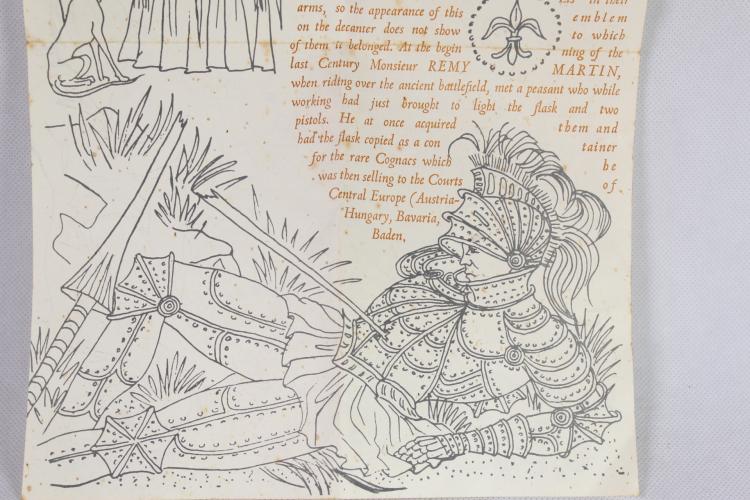 in their
arms, so the appearance of this emblem
on the decanter does not show to which
of them it belonged. At the begin ning of the
last Century Monsieur REMY MARTIN,
when riding over the ancient battlefield, met a peasant who while
working had just brought to light the flask and two
pistols. He at once acquired them and
had the flask copied as a con tainer
for the rare Cognacs which he
was then selling to the Courts of
Central Europe (Austria-
Hungary, Bavaria,
Baden,